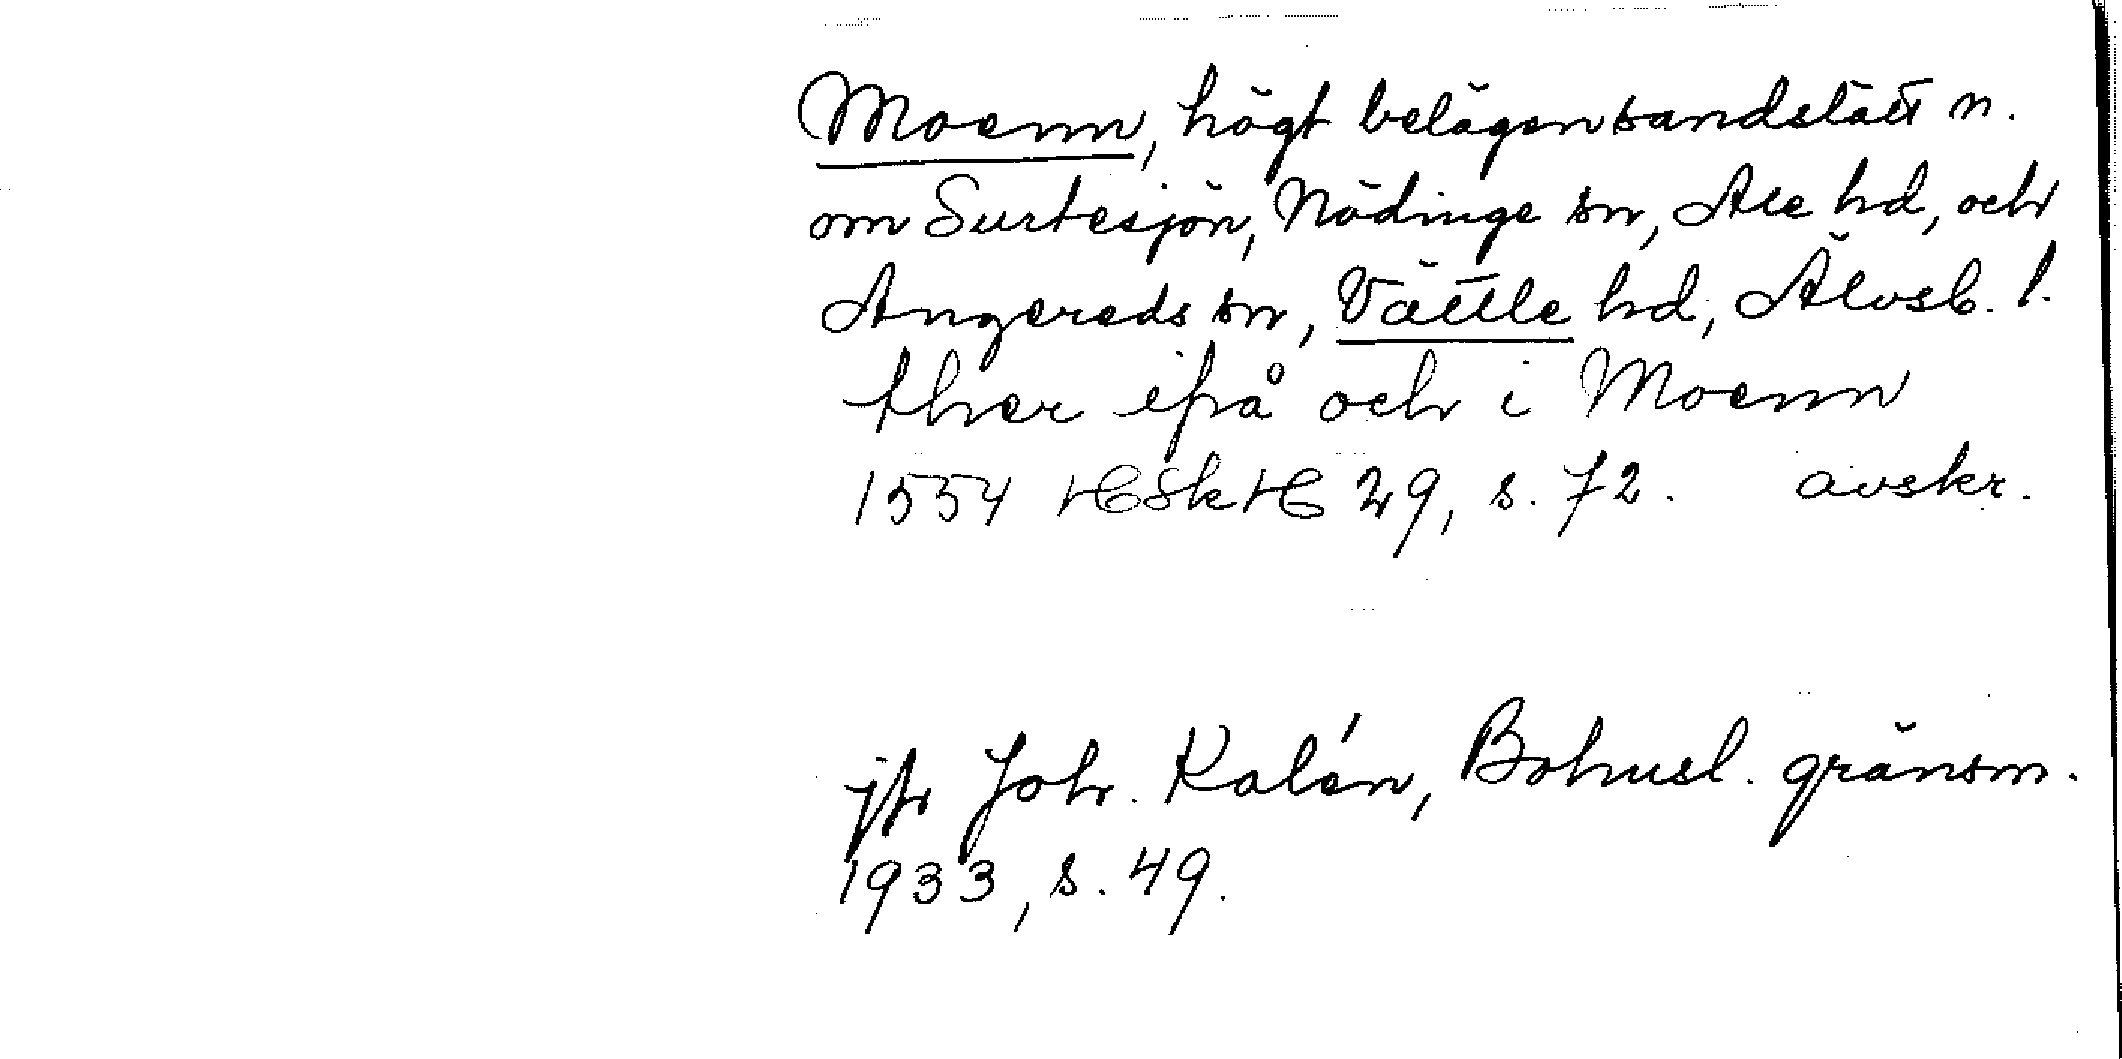 Moenn, högt belägen sandslätt n.
om Surtesjön, Nödinge sn, Ale hd, och
Angereds sn, Vättle hd, Älvsb. l.
ther ifrå och i Moenn
1554 HSkH 29, s. 72. avskr.
jfr Joh. Kalén, Bohusl. gränsm.
1933, s. 49.